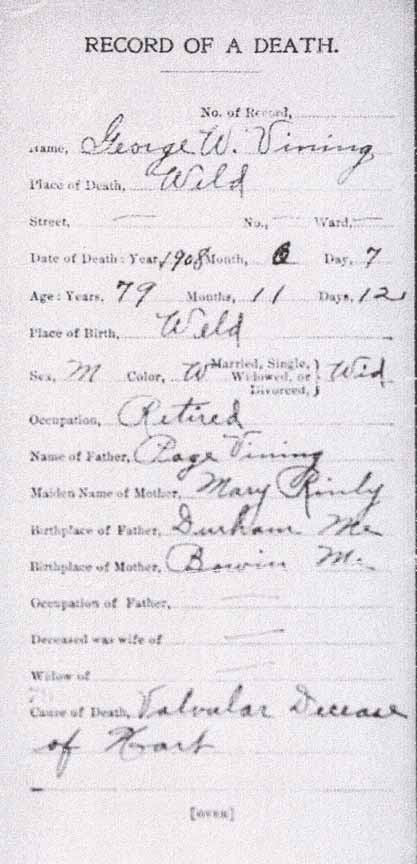 RECORD OF A DEATH.
No. of Record,
Name, George W. Vining
Place of Death, Weld
Street, — No., — Ward, —
Date of Death: Year, 1908 Month, 6 Day, 7
Age: Years, 79 Months, 11 Days, 12
Place of Birth, Weld
Sex, M Color, W Married, Single, Widowed, or Divorced, } Wid
Occupation, Retired
Name of Father, Page Vining
Maiden Name of Mother, Mary
Birthplace of Father, Durham Me
Birthplace of Mother, M.
Occupation of Father, —
Deceased was wife of —
Widow of —
Cause of Death, Valvular Decease
of Hart
[OVER]